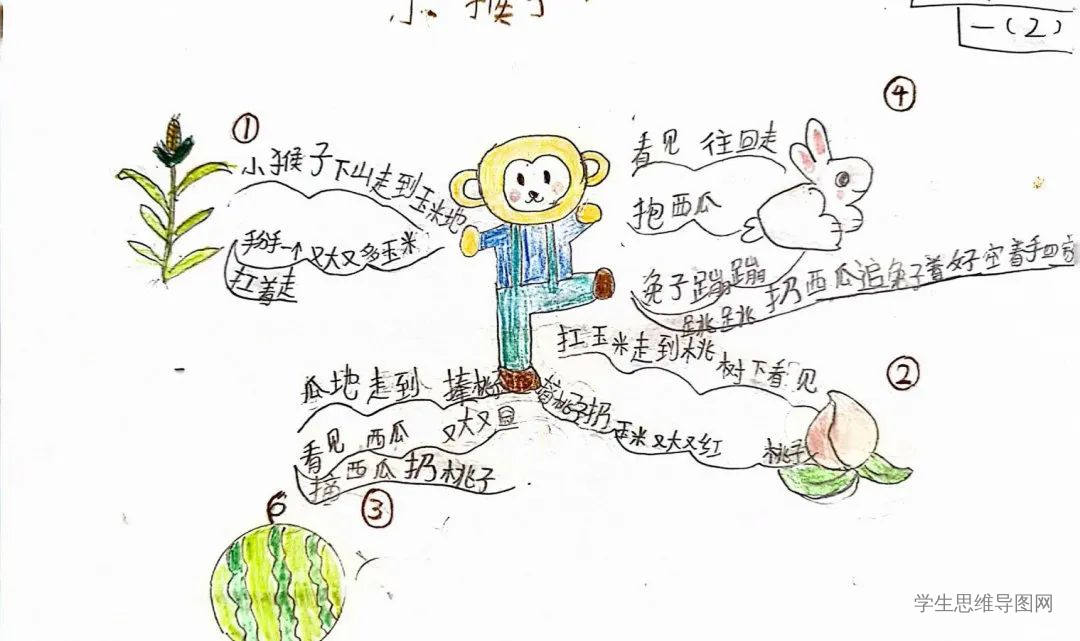 小猴子
一(2)
①
小猴子下山走到玉米地
掰一个又大又多玉米
扛着走
④
看见 往回走
抱西瓜
兔子蹦蹦
跳跳
扔西瓜追兔子着好空着手回
②
扛玉米走到桃
树下看见
摘桃子扔玉米又大又红
桃子
瓜地走到 捧桃
看见 西瓜 又大又
摘西瓜扔桃子
③
学生思维导图网